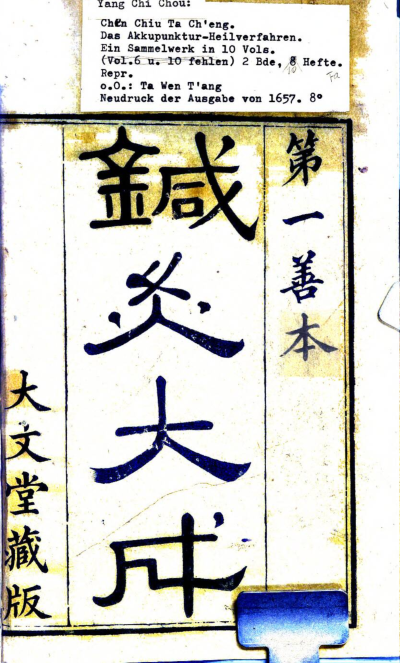 Yang Chi Chou:
Chen Chiu Ta Ch'eng.
Das Akkupunktur-Heilverfahren.
Ein Sammelwerk in 10 Vols.
(Vol.6 u. 10 fehlen) 2 Bde, 8 Hefte.
Repr.
o.O.: Ta Wen T'ang
Neudruck der Ausgabe von 1657. 8°
第一善本
鍼灸大成
大文堂藏版